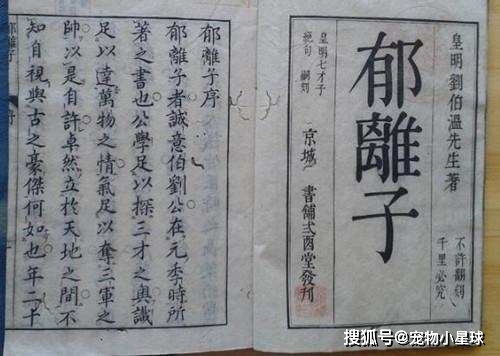 皇明劉伯溫先生著
不許翻刻
千里必究
郁離子
皇明七才子
絕句 嗣刻
京城 書舖弍酉堂發刊
郁離子序
郁離子者誠意伯劉公在元季時所
著之書也公學足以探三才之奧識
足以達萬物之情氣足以奪三軍之
帥以是自許卓然立於天地之間不
知自視與古之豪傑何如也年二十
郁離子
搜狐号@宠物小星球